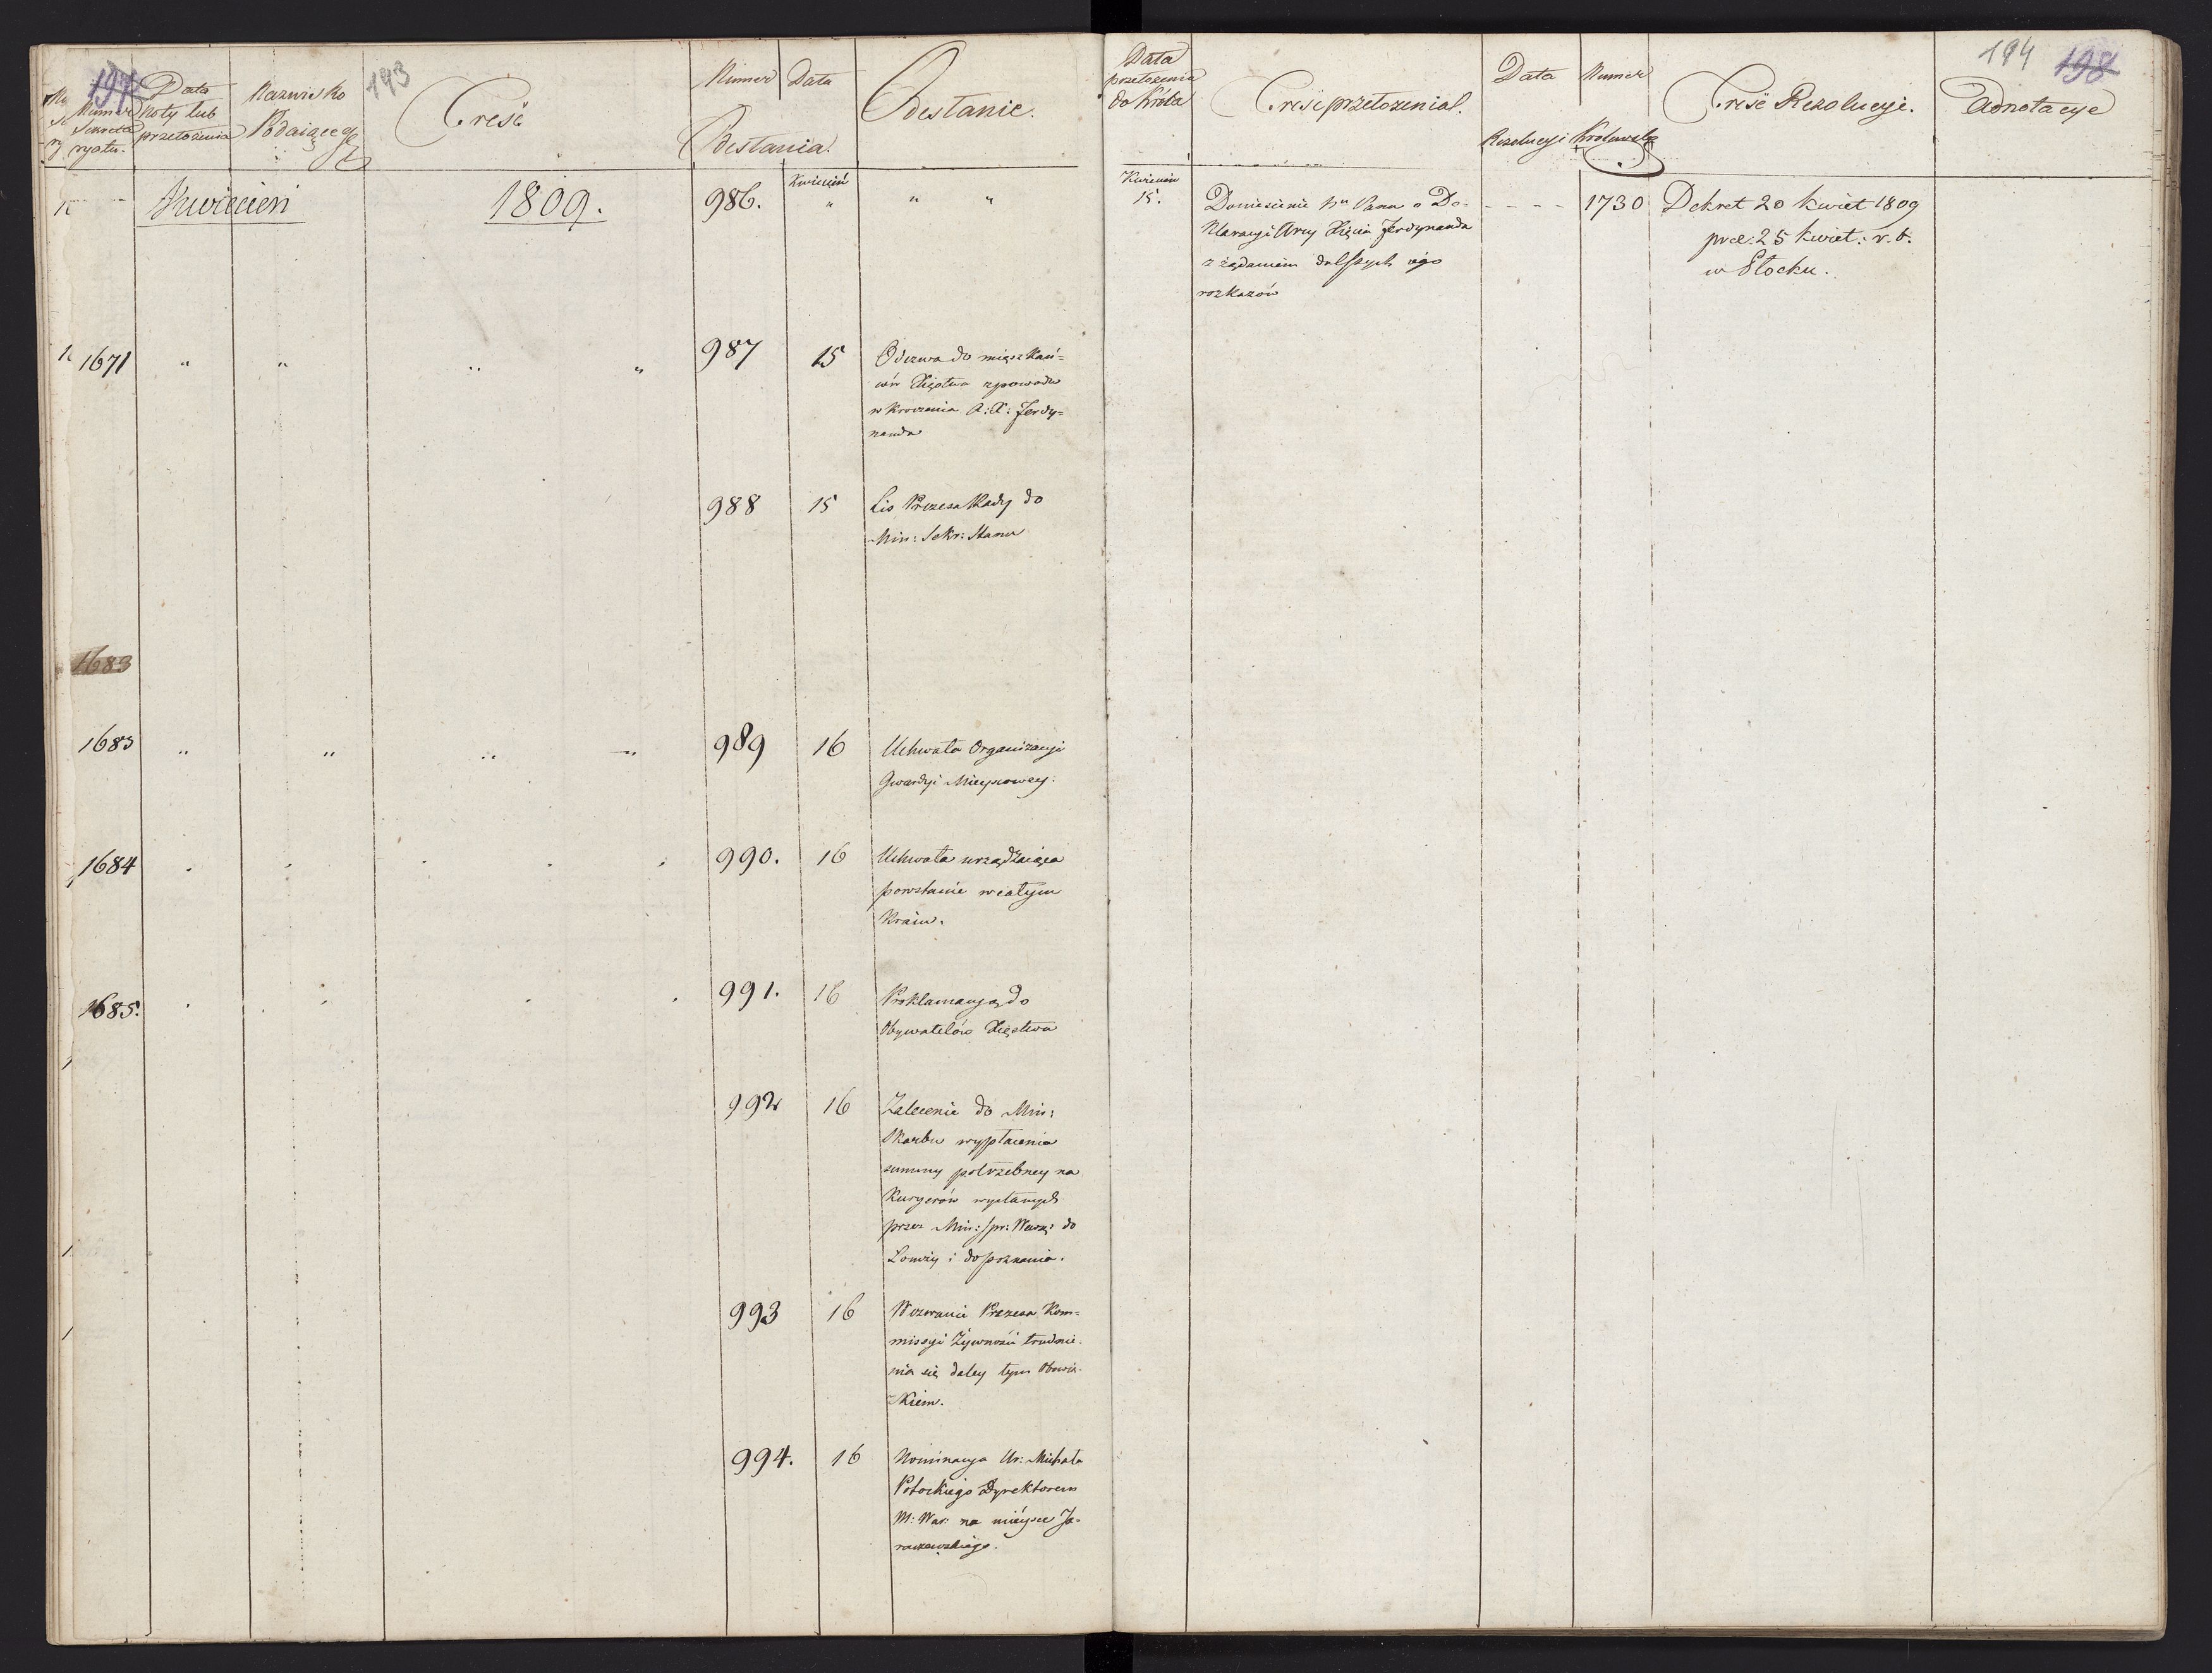 197
193
Numer
Sekreta
ryatu.
Data
Noty lub
przełożenia
Nazwisko
Podaiącego
Treść
Numer
Data
Odesłania.
Odesłanie.
Kwiecień
1809.
986.
Kwiecień
"
" "
1671
" " " "
987
15
Odezwa do mieszkań=
ców Xięstwa z powodu
wkroczenia A: X: Ferdy=
nanda
988
15
Lis Prezesa Rady do
Min: Sekr: Stanu
1683
1683
" " " "
989
16
Uchwała Organizacyi
Gwardyi Mieyscowey.
1684
990.
16
Uchwała urządzaiąca
powstanie w całym
Kraiu.
1685.
991.
16
Proklamacya do
Obywatelów Xięstwa
992
16
Zalecenie do Min:
Skarbu wypłacenia
summy potrzebney na
Kuryerów wysłanych
przez Min: Spr: Wewn: do
Łomży i do Poznania.
993
16
Wezwanie Prezesa Kom=
missyi Żywności trudnie
nia się daley tym Obowią
zkiem.
994.
16
Nominacya Ur: Michała
Potockiego Dyrektorem
M: War: na mieysce Ja=
raczewskiego.
194
198
Data
przełożenia
do Króla
Treść przełożenia.
Data
Numer
Rezolucyi Królewskiey
Treść Rezolucyi.
Adnotacye
Kwiecień
15.
Doniesienie Nu Panu o De-
klaracyi Arcy Xięcia Ferdynanda
z żądaniem dalszych iego
rozkazów
- - - -
1730
Dekret 20 Kwiet 1809
prae: 25 Kwiet: r. b.
w Płocku.